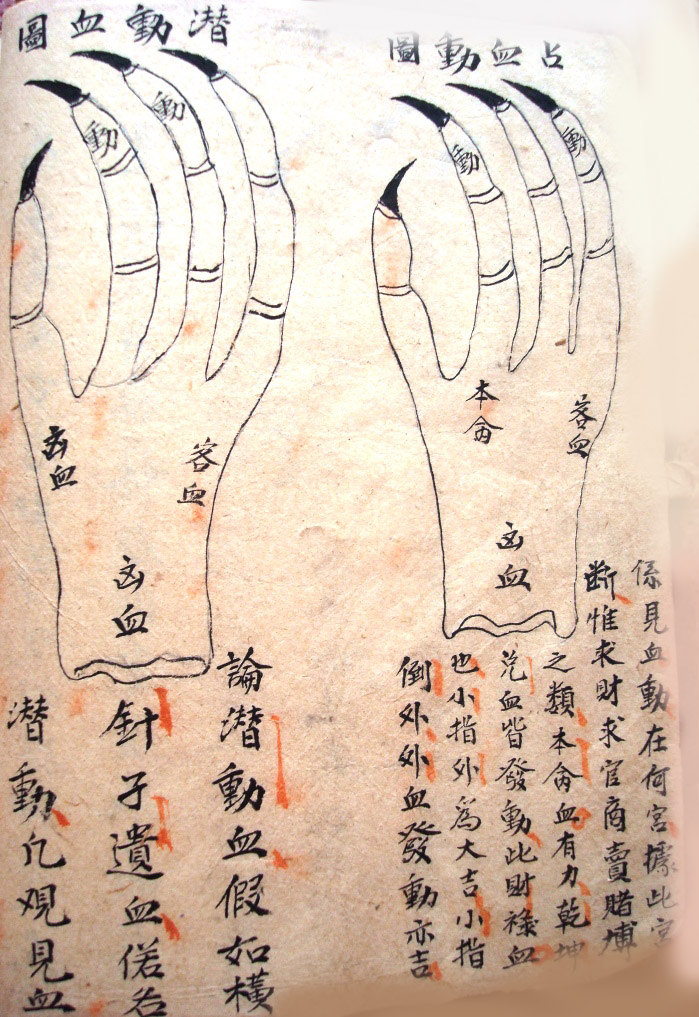 占血動圖
動
動
本禽
客血
凶血
係見血動在何宮據此宮
断惟求財求官商賣賭博
之類本禽血有力乾坤
兑血皆發動此財祿血
也小指外爲大吉小指
倒外外血發動亦吉
潛動血圖
動
動
凶血
客血
凶血
論潛動血假如橫
針子遺血偌若
潛動凢观見血